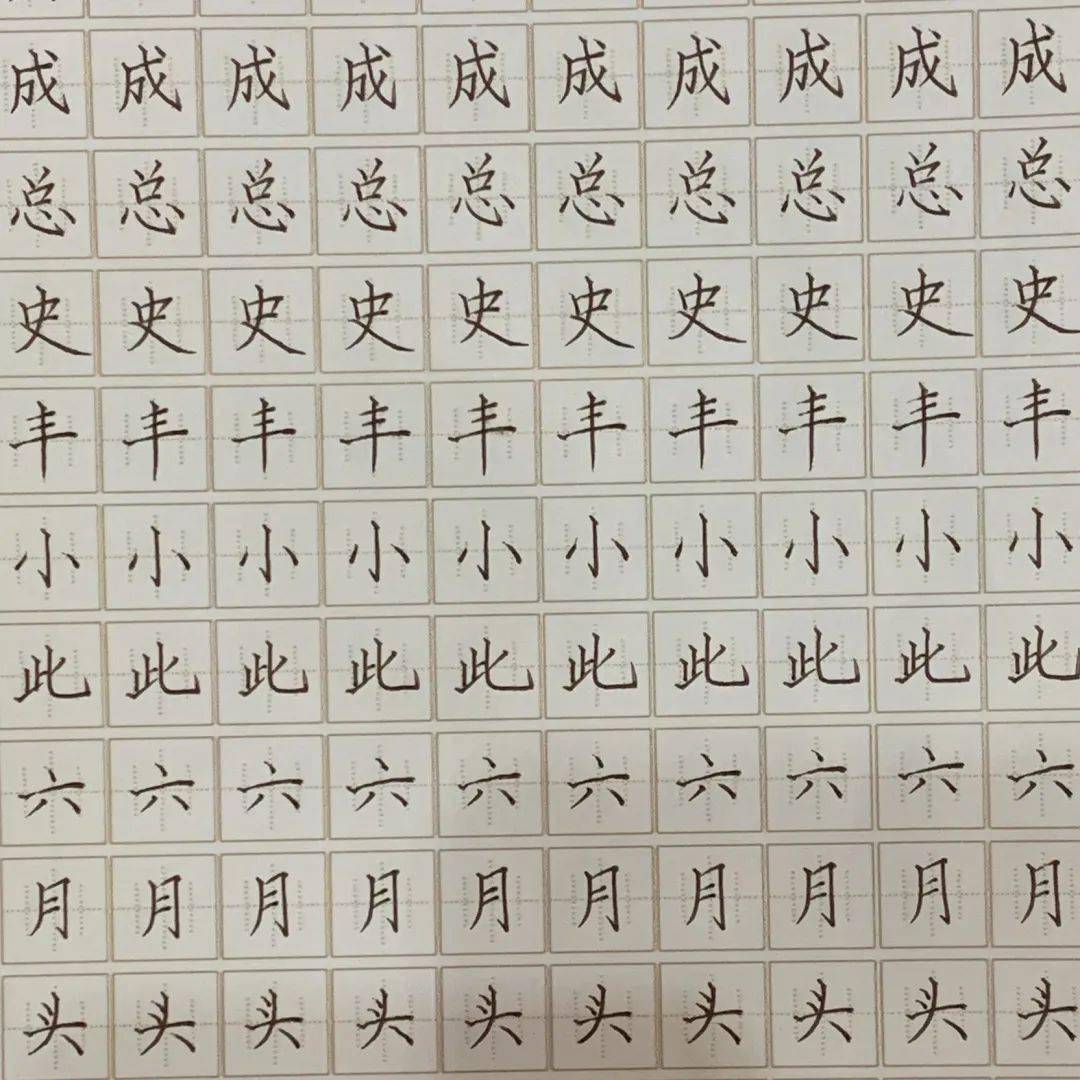 成成成成成成成成成成
总总总总总总总总总总
史史史史史史史史史史
丰丰丰丰丰丰丰丰丰丰
小小小小小小小小小小
此此此此此此此此此此
六六六六六六六六六六
月月月月月月月月月月
头头头头头头头头头头